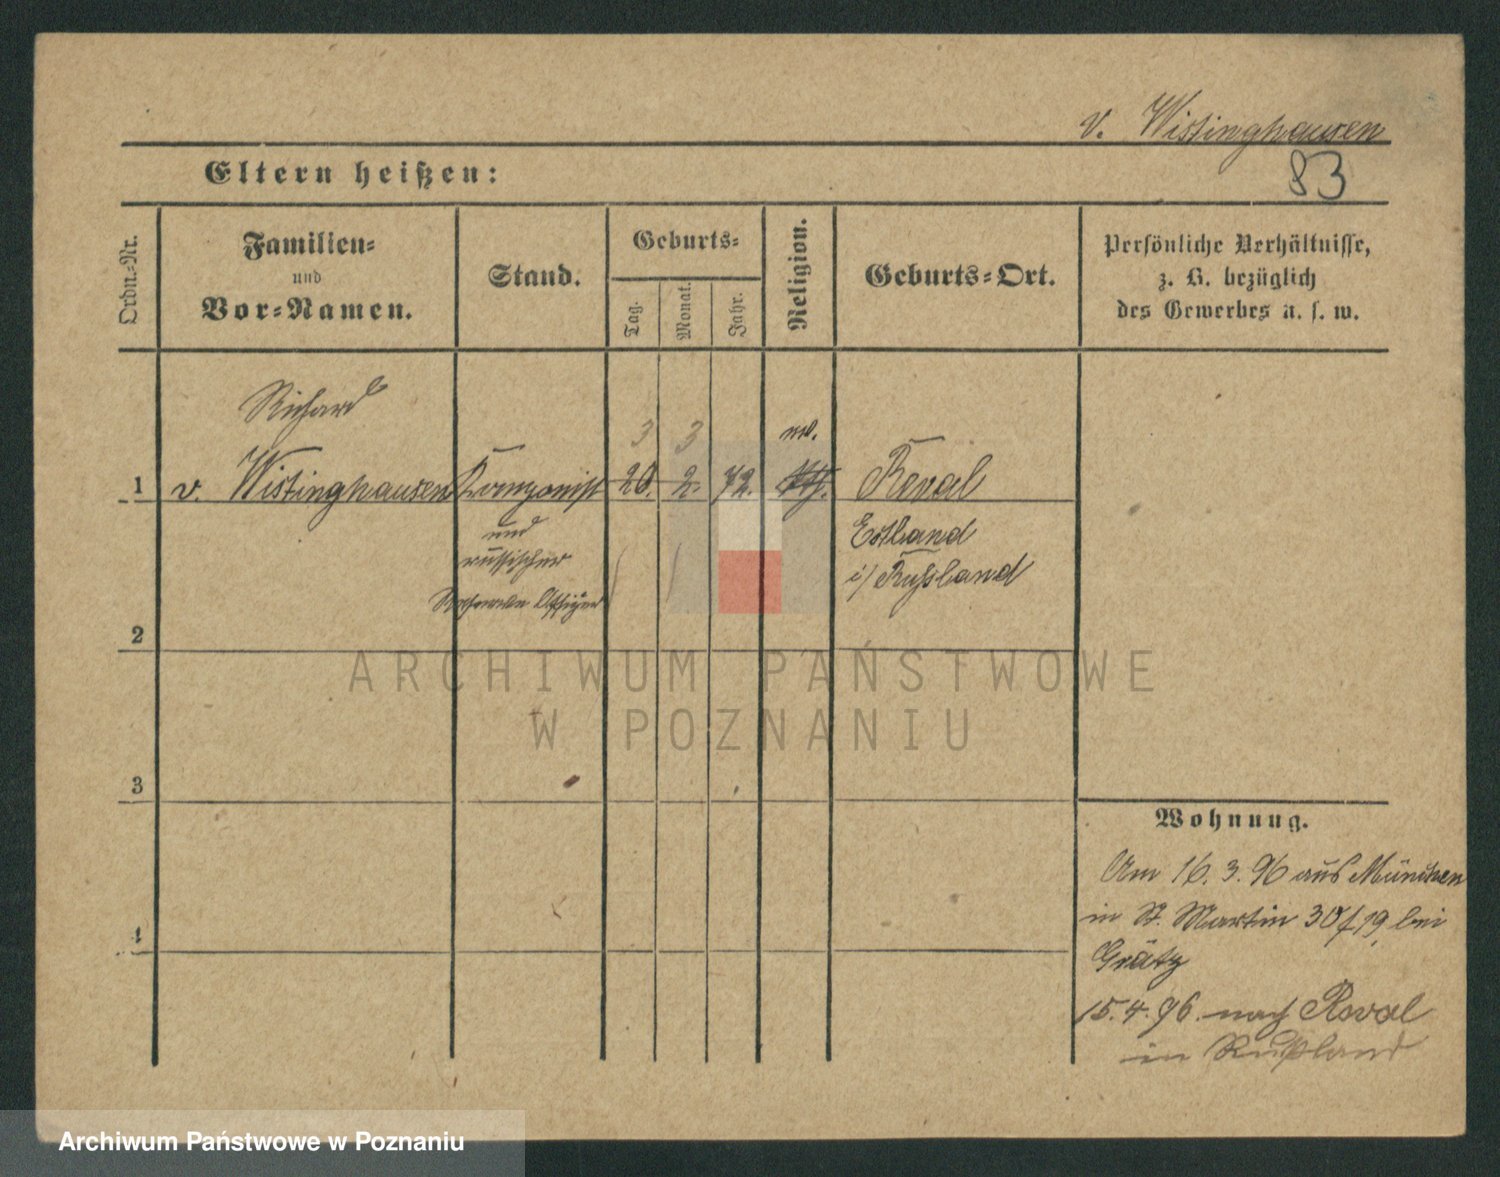 v. Wistinghausen
Eltern heißen:
83
Ordn.-Nr.
Familien-
und
Vor-Namen.
Stand.
Geburts-
Tag.
Monat.
Jahr.
Religion.
Geburts-Ort.
Persönliche Verhältnisse,
z. B. bezüglich
des Gewerbes u. s. w.
Richard
3 3
1 v. Wistinghausen Komponist 20. 2. 72. Reval
und
russischer
Reserve Offizier
Estland
i/ Russland
2
3
4
Wohnung.
Am 16. 3. 96 aus München
in St. Martin 30/19 bei
Grätz
15. 4. 96. nach Reval
in Rußland
ARCHIWUM PAŃSTWOWE
W POZNANIU
Archiwum Państwowe w Poznaniu